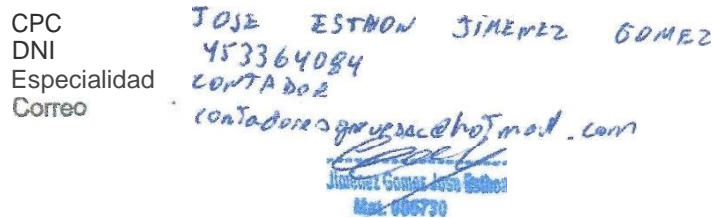 CPC JOSE ESTHON JIMENEZ GOMEZ
DNI 453364084
Especialidad CONTADOR
Correo contadoresgroupsac@hotmail.com
Jimenez Gomez Jose Esthon
Mat. 006730